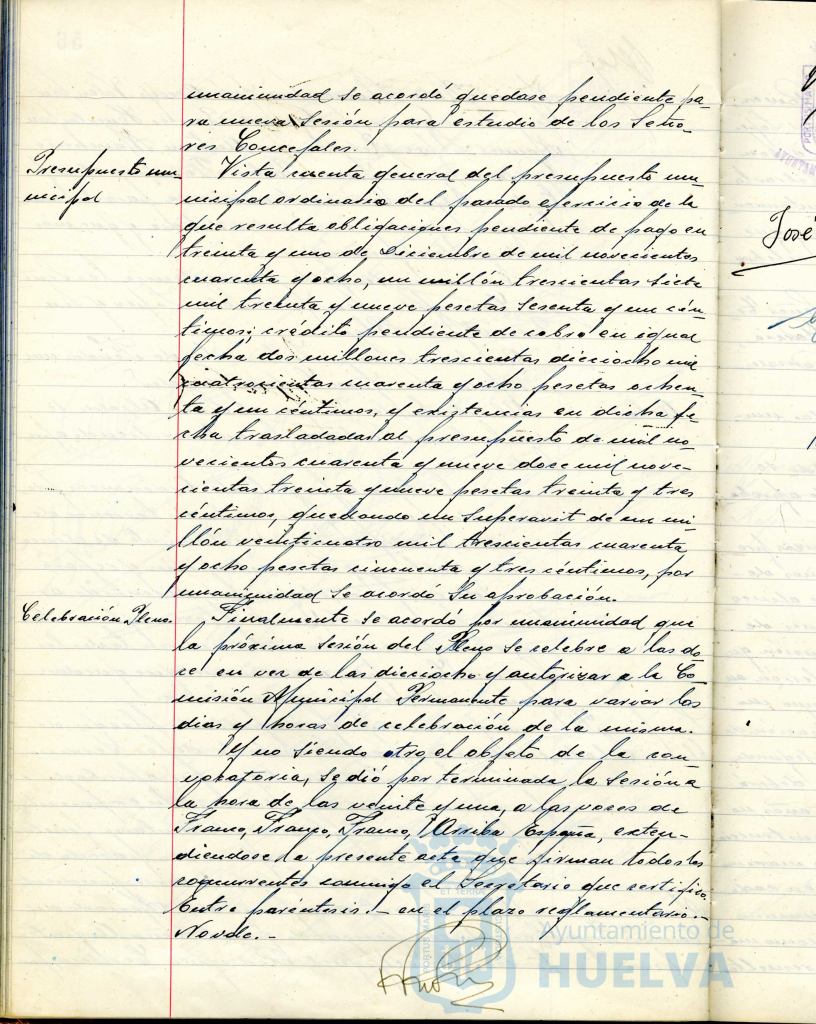 unanimidad se acordó quedase pendiente pa-
ra nueva Sesión para estudio de los Seño-
res Concejales.
Presupuesto mu-
nicipal
Vista cuenta general del presupuesto mu-
nicipal ordinario del pasado ejercicio de la
que resulta obligaciones pendiente de pago en
treinta y uno de Diciembre de mil novecientos
cuarenta y ocho, un millón trescientas siete
mil treinta y nueve pesetas sesenta y un cén-
timos; crédito pendiente de cobro en igual
fecha dos millones trescientas dieciocho mil
cuatrocientas cuarenta y ocho pesetas ochen-
ta y un céntimos, y existencias en dicha fe-
cha trasladadas al presupuesto de mil no-
vecientos cuarenta y nueve doce mil nove-
cientas treinta y nueve pesetas treinta y tres
céntimos, quedando un Superavit de un mi-
llón veinticuatro mil trescientas cuarenta
y ocho pesetas cincuenta y tres céntimos, por
unanimidad se acordó su aprobación.
Celebración Pleno.
Finalmente se acordó por unanimidad que
la próxima sesión del Pleno se celebre a las do-
ce en vez de las dieciocho y autorizar a la Co-
misión Municipal Permanente para variar los
dias y horas de celebración de la misma.
Y no siendo otro el objeto de la con-
vocatoria, se dió por terminada la Sesión a
la hora de las veinte y una, a las voces de
Franco, Franco, Franco, ¡Arriba España, exten-
diendose la presente acta que firman todos los
concurrentes conmigo el Secretario que certifico.
Entre paréntesis.- en el plazo reglamentario.-
No vale.-
Ayuntamiento de
HUELVA
José